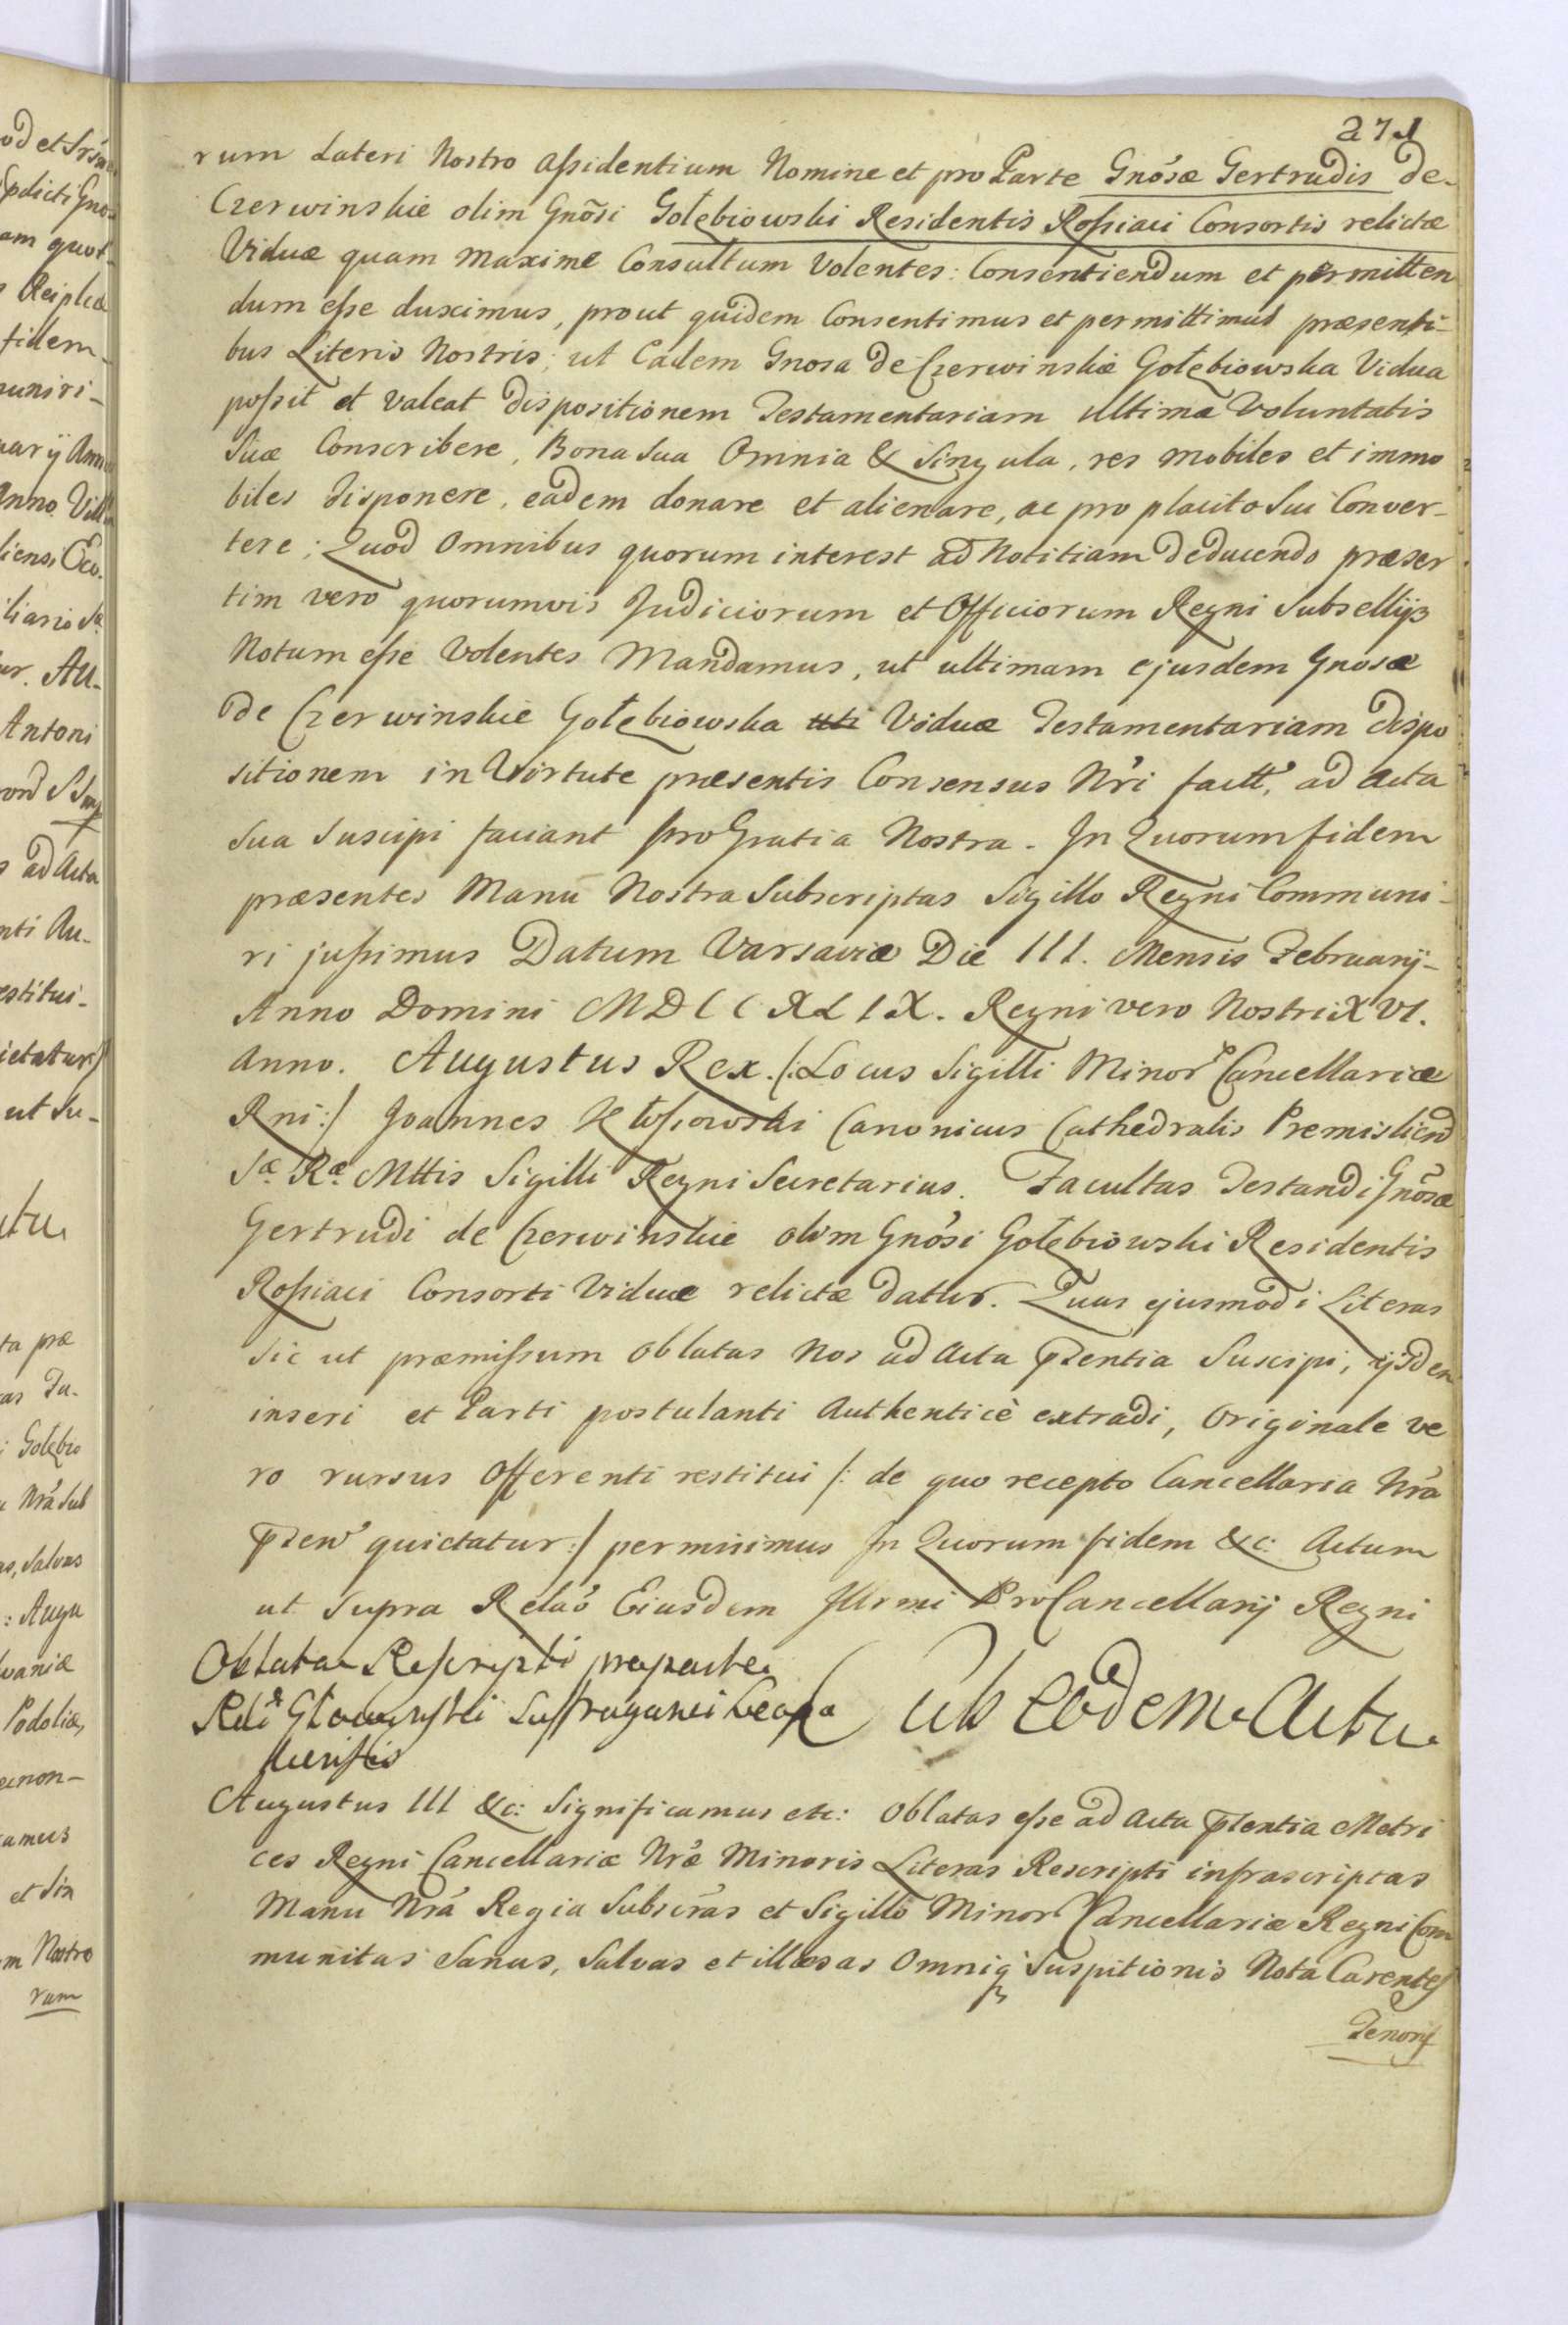 271
rum Lateri Nostro assidentium Nomine et pro Parte Gnosæ Gertrudis de-
Czerwinskie olim Gnõsi Gołębiowski Residentis Rossiaci Consortis relictæ
Viduæ quam maxime Consultum Volentes: Consentiendum et permitten
dum esse duximus, prout quidem Consentimus et permittimus præsenti-
bus Literis Nostris; ut Eadem Gnosa de Czerwinskie Gołębiowska Vidua
possit et valeat dispositionem Testamentariam ultimæ Voluntatis
Suæ Conscribere, Bona sua Omnia & Singula, res mobiles et immo
biles disponere, eadem donare et alienare, ac pro placito Sui Conver-
tere; Quod Omnibus quorum interest ad Notitiam deducendo præser
tim vero quorumvis Judiciorum et Officiorum Regni Subsellijs
Notum esse Volentes Mandamus, ut ultimam ejusdem Gnosæ
de Czerwinskie Gołębiowska uti Viduæ Testamentariam dispo
sitionem in Virtute præsentis Consensus Nri fact, ad acta
sua Suscipi faciant pro Gratia Nostra. In Quorum fidem
præsentes Manu Nostra Subscriptas Sigillo Regni Communi-
ri jussimus Datum Varsaviæ Die III. Mensis Februarij-
Anno Domini MDCCXLIX. Regni vero Nostri XVI.
Anno. Augustus Rex. /:Locus Sigilli Minor Cancellariæ
Rni:/ Joannes Canonicus Cathedralis Premislien
Sæ Ræ Mttis Sigilli Regni Secretarius. Facultas Testandi Gnõsæ
Gertrudi de Czerwinskie olim Gnosi Gołębiowski Residentis
Rossiaci Consorti Viduæ relictæ datur. Quas ejusmodi Literas
Sic ut præmissum oblatas Nos ad Acta pñtia Suscipi, ijsdem
inseri et Parti postulanti Authenticè extradi, Originale ve
ro rursus Offerenti restitui /: de quo recepto Cancellaria Nra
quietatur:/ permisimus In Quorum fidem &c: Actum
ut Supra Relao Eiusdem Illrmi ProCancellarij Regni
Oblata Rescripti pro parte
Suffraganei
Sub eodem Actu
Augustus III &c: Significamus etc: Oblatas esse ad Acta Metri
ces Regni Cancellariæ Nræ Minoris Literas Rescripti infrascriptas
Manu Nra Regia Subscras et Sigillo Minor Cancellariæ Regni Com
munitas Sanas, Salvas et illæsas Omniq Suspitionis Nota Carentes
Tenoris